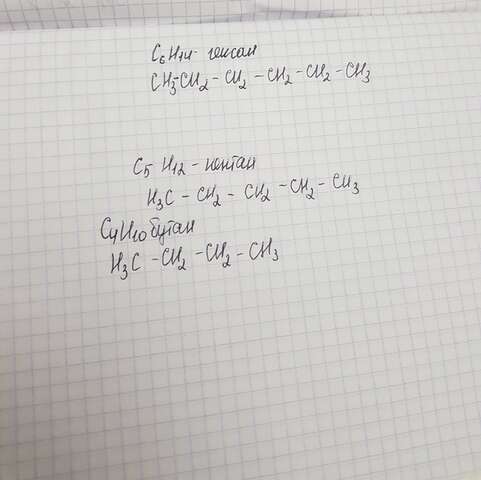 C₆H₁₄ - гексан
CH₃-CH₂ - CH₂ - CH₂ - CH₂ - CH₃
C₅ H₁₂ - пентан
H₃C - CH₂ - CH₂ - CH₂ - CH₃
C₄H₁₀ бутан
H₃C - CH₂ - CH₂ - CH₃